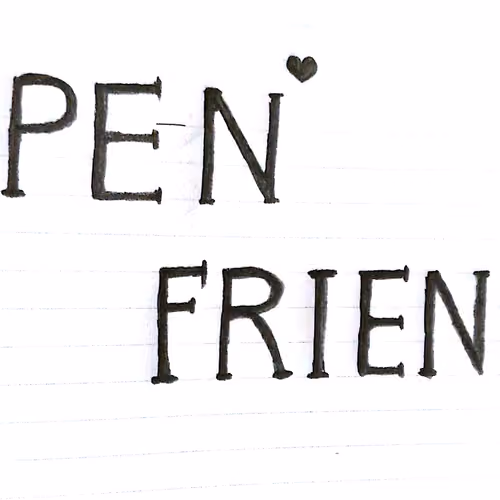 PEN
FRIEN